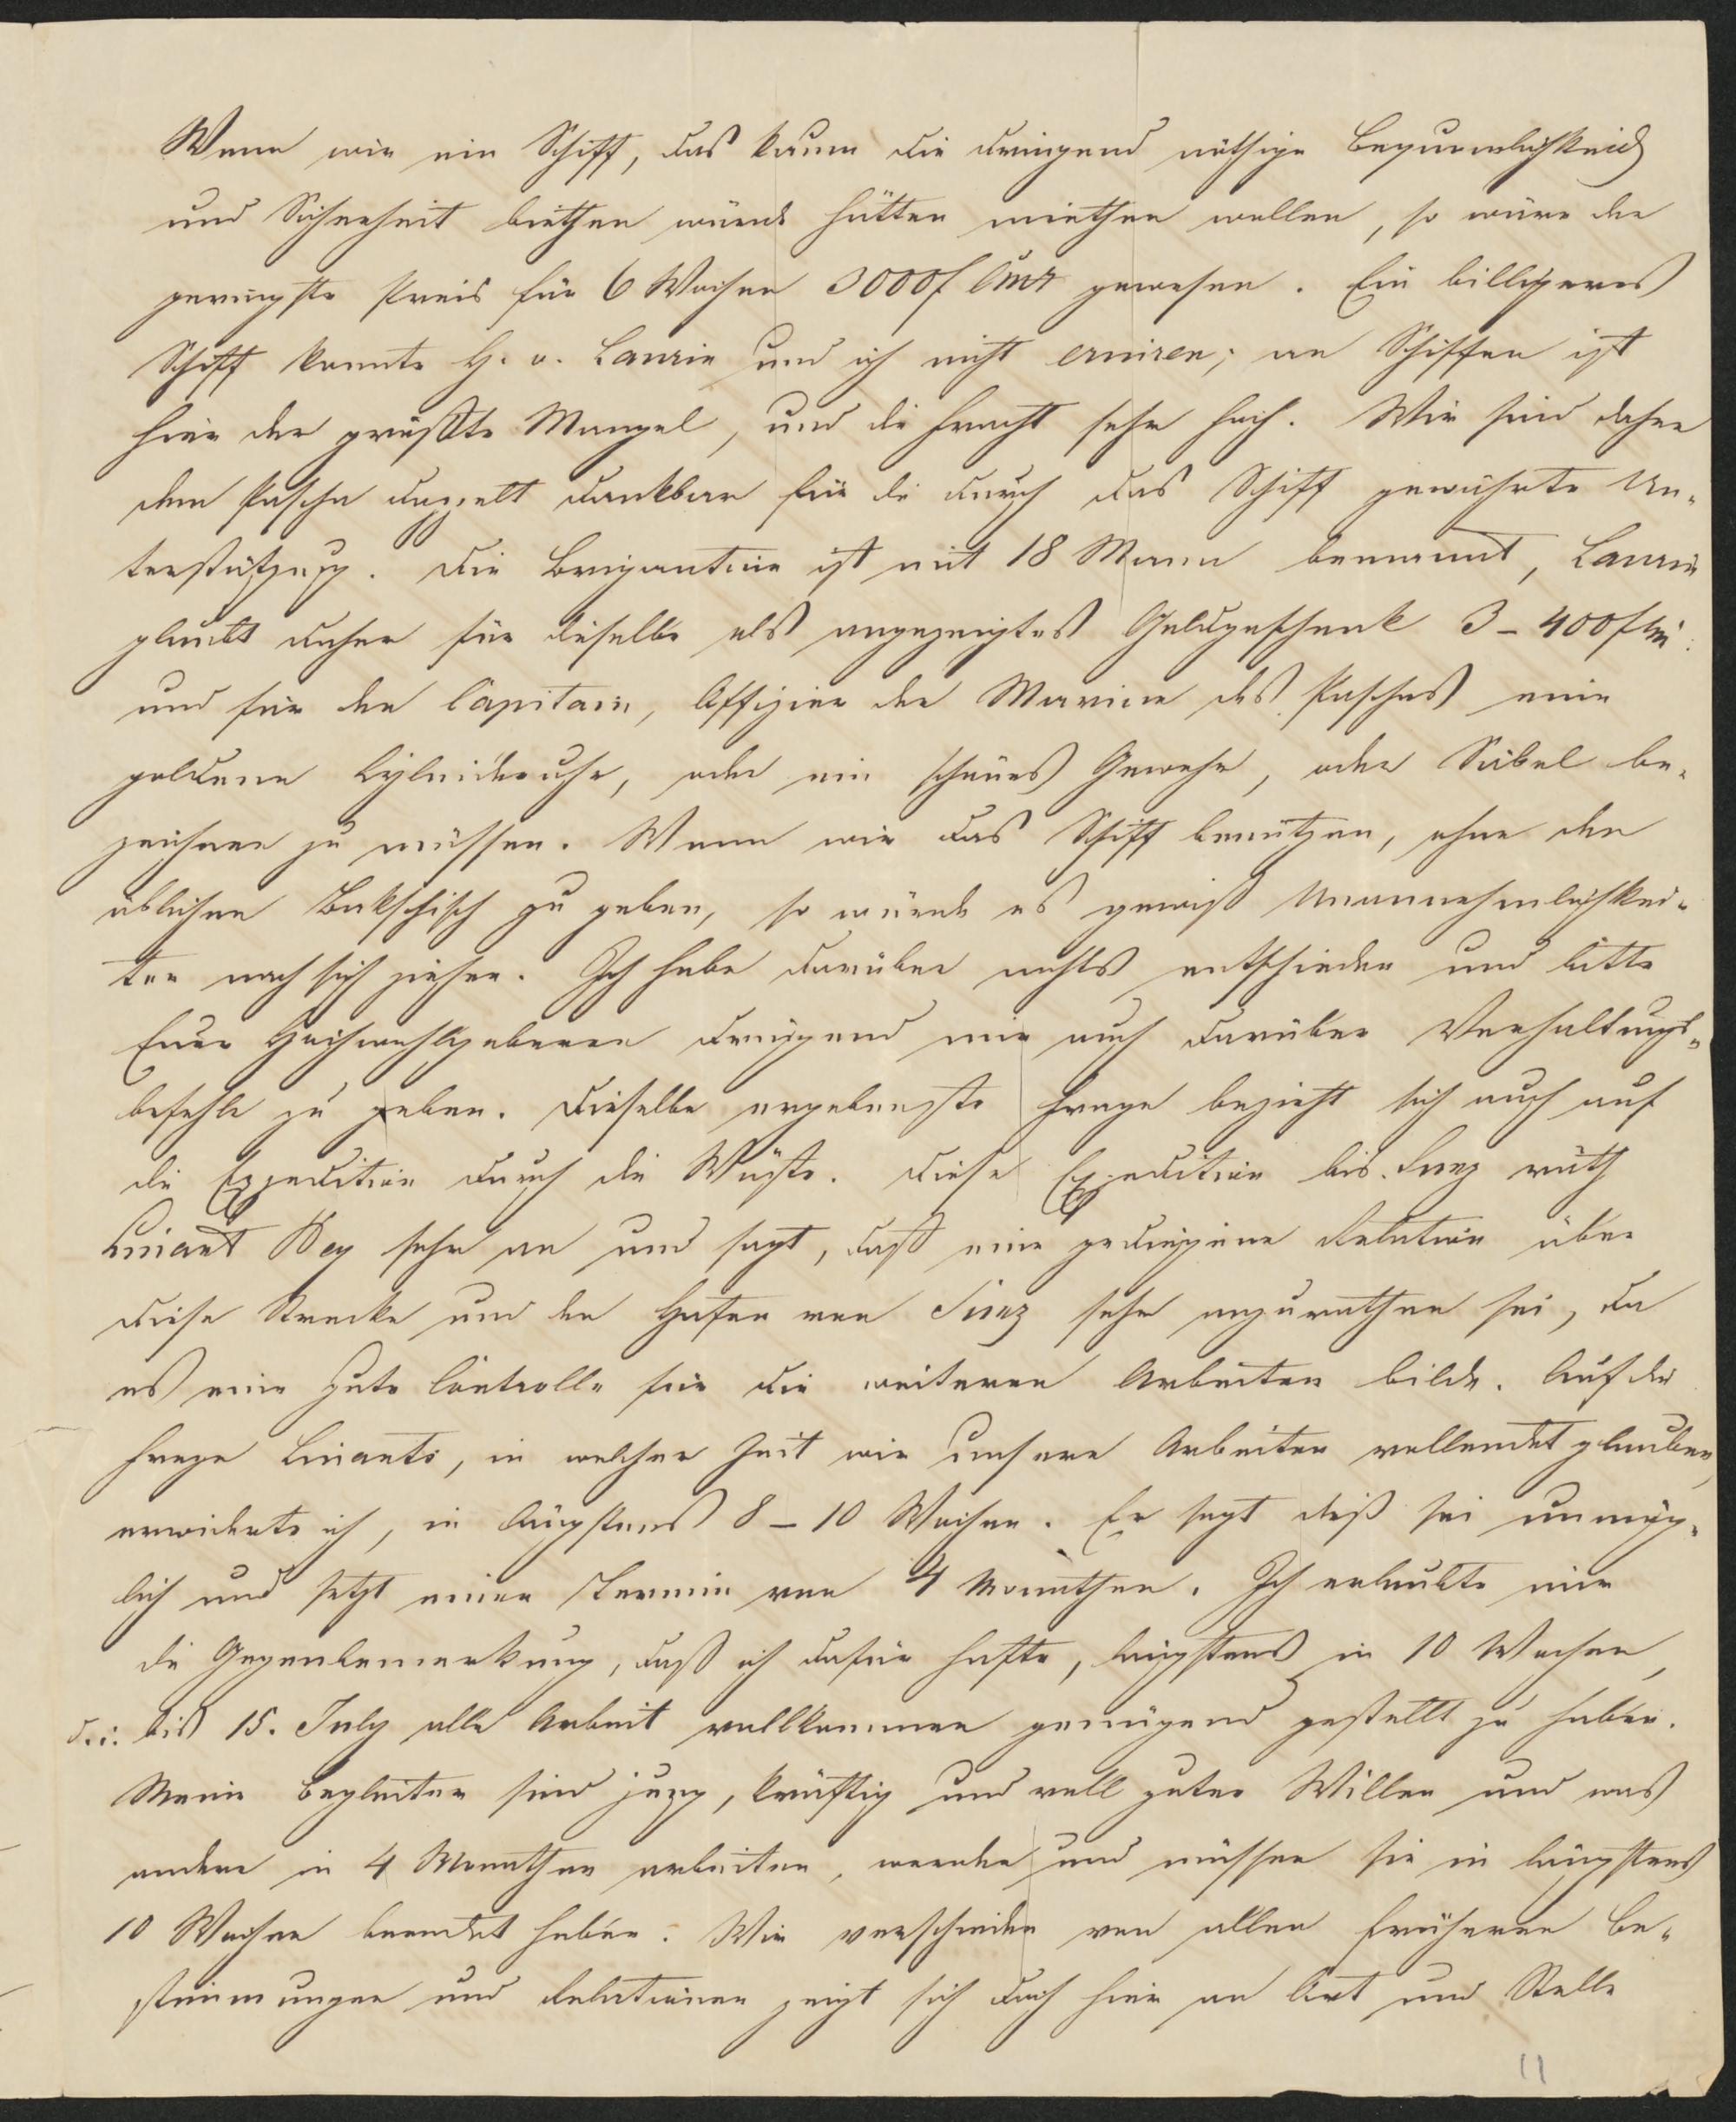 Wenn wir ein Schiff, das kaum die dringend nöthige Bequemlichkeit
und Sicherheit biethen würde hätten miethen wollen, so wäre der
geringste Preis für 6 Wochen 3000f Cmz gewesen. Ein billigeres
Schiff konnte H. v. Laurin und ich nicht eruiren; an Schiffen ist
hier der größte Mangel, und die Fracht sehr hoch. Wir sind daher
dem Pascha doppelt dankbar für die durch das Schiff gewährte Un-
terstützung. Die Brigantine ist mit 18 Mann bemannt, Laurin
glaubt daher für dieselbe als angezeigtes Geldgeschenk 3 – 400f
und für den Capitain, Offizier der Marine des Paschas eine
goldene Cylinderuhr, oder ein schönes Gewehr, oder Säbel be-
zeichnen zu müssen. Wenn wir das Schiff benützen, ohne den
üblichen Bakschisch zu geben, so würde es gewiß Unannehmlichkei-
ten nach sich ziehen. Ich habe darüber nichts entschieden und bitte
Euer Hochwohlgeboren dringend mir auch darüber Verhaltungs-
befehle zu geben. Dieselbe ergebenste Frage bezieht sich auch auf
die Expedition durch die Wüste. Diese Expedition bis Suez räth
Linant Bey sehr an und sagt, daß eine gediegene Relation über
diese Strecke und den Hafen von Suez sehr anzurathen sei, da
es eine gute Controlle für die weiteren Arbeiten bilde. Auf die
Frage Linants, in welcher Zeit wir unsere Arbeiten vollendet glauben,
erwiderte ich, in längstens 8 – 10 Wochen. Er sagt dieß sei unmög-
lich und setzt einen Termin von 4 Monathen. Ich erlaubte mir
die Gegenbemerkung, daß ich dafür hafte, längstens in 10 Wochen,
d. i. bis 15. July alle Arbeit vollkommen genügend gestellt zu haben.
Meine Begleiter sind jung, kräftig und voll guter Willen und was
andere in 4 Monathen arbeiten, werden und müssen sie in längstens
10 Wochen beendet haben. Wie verschieden von allen früheren Be-
stimmungen und Relationen zeigt sich doch hier an Ort und Stelle
11